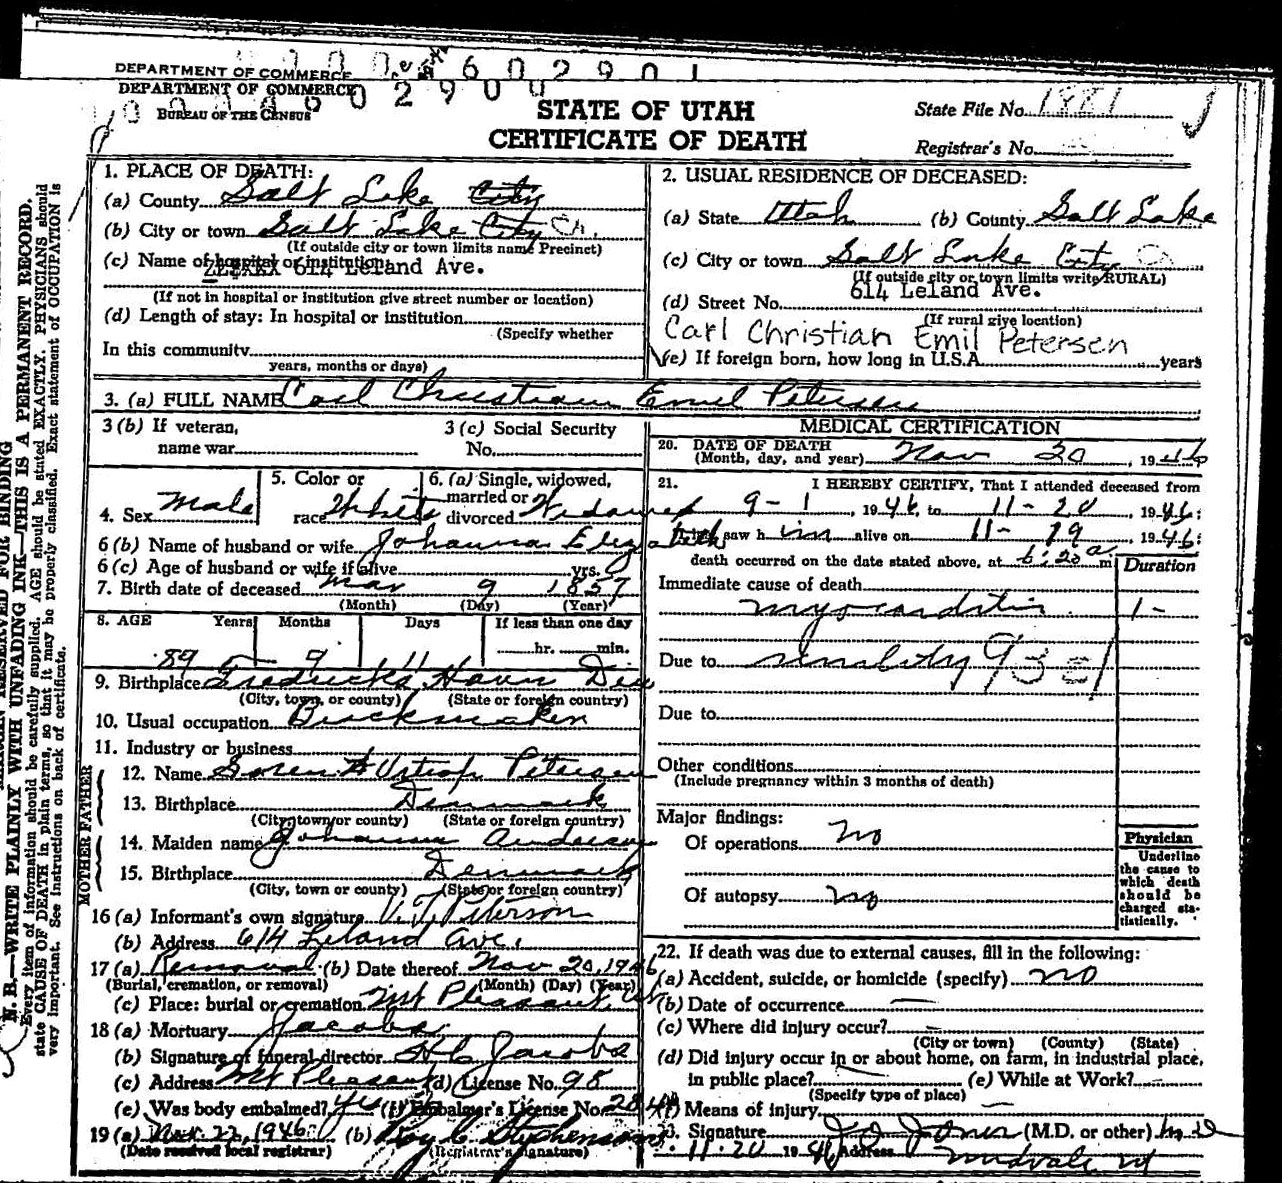 602901
DEPARTMENT OF COMMERCE
DEPARTMENT OF COMMERCE
602900
BUREAU OF THE CENSUS
STATE OF UTAH
CERTIFICATE OF DEATH
State File No. 1881
Registrar's No.
N. B.—WRITE PLAINLY WITH UNFADING INK—THIS IS A PERMANENT RECORD.
Every item of information should be carefully supplied. AGE should be stated EXACTLY. PHYSICIANS should
state CAUSE OF DEATH in plain terms, so that it may be properly classified. Exact statement of OCCUPATION is
very important. See instructions on back of certificate.
1. PLACE OF DEATH:
(a) County Salt Lake City
(b) City or town Salt Lake City
(If outside city or town limits name Precinct)
(c) Name of hospital or institution
614 Leland Ave.
(If not in hospital or institution give street number or location)
(d) Length of stay: In hospital or institution
(Specify whether
In this community
years, months or days)
2. USUAL RESIDENCE OF DECEASED:
(a) State Utah (b) County Salt Lake
(c) City or town Salt Lake City
(If outside city or town limits write RURAL)
614 Leland Ave.
(d) Street No.
(If rural give location)
Carl Christian Emil Petersen
(e) If foreign born, how long in U.S.A. years
3. (a) FULL NAME Carl Christian Emil Petersen
3 (b) If veteran,
name war
3 (c) Social Security
No.
4. Sex Male
5. Color or
race White
6. (a) Single, widowed,
married or
divorced Widowed
6 (b) Name of husband or wife Johanna Elizabeth
6 (c) Age of husband or wife if alive yrs.
7. Birth date of deceased Mar 9 1857
(Month) (Day) (Year)
8. AGE Years Months Days If less than one day
89 9 11 hr. min.
9. Birthplace Fredricks Havn Den
(City, town, or county) (State or foreign country)
10. Usual occupation Brickmaker
11. Industry or business
FATHER
12. Name Soren Petersen
13. Birthplace Denmark
(City, town or county) (State or foreign country)
MOTHER
14. Maiden name Johanna Andersen
15. Birthplace Denmark
(City, town or county) (State or foreign country)
16 (a) Informant's own signature V. T. Peterson
(b) Address 614 Leland Ave.
17 (a) Removal (b) Date thereof Nov 20, 1946
(Burial, cremation, or removal) (Month) (Day) (Year)
(c) Place: burial or cremation Mt Pleasant, Ut
18 (a) Mortuary Jacobs
(b) Signature of funeral director H C Jacobs
(c) Address Mt Pleasant (d) License No. 98
(e) Was body embalmed? yes (f) Embalmer's License No.
19 (a) Nov. 22, 1946 (b) Roy C Stephenson
(Date received local registrar) (Registrar's signature)
MEDICAL CERTIFICATION
20. DATE OF DEATH
(Month, day, and year) Nov 20, 1946
21. I HEREBY CERTIFY, That I attended deceased from
9-1, 1946, to 11-20 1946;
saw him alive on 11-19 1946;
death occurred on the date stated above, at 6:20 a m
Duration
Immediate cause of death
myocarditis 1-
Due to senility 93e1
Due to
Other conditions
(Include pregnancy within 3 months of death)
Major findings:
Of operations no
Of autopsy no
Physician
Underline
the cause to
which death
should be
charged sta-
tistically.
22. If death was due to external causes, fill in the following:
(a) Accident, suicide, or homicide (specify) no
(b) Date of occurrence —
(c) Where did injury occur? —
(City or town) (County) (State)
(d) Did injury occur in or about home, on farm, in industrial place,
in public place? (e) While at Work?
(Specify type of place)
(f) Means of injury —
23. Signature J O Jones (M.D. or other) M D
11-20 1946 Address Midvale Ut